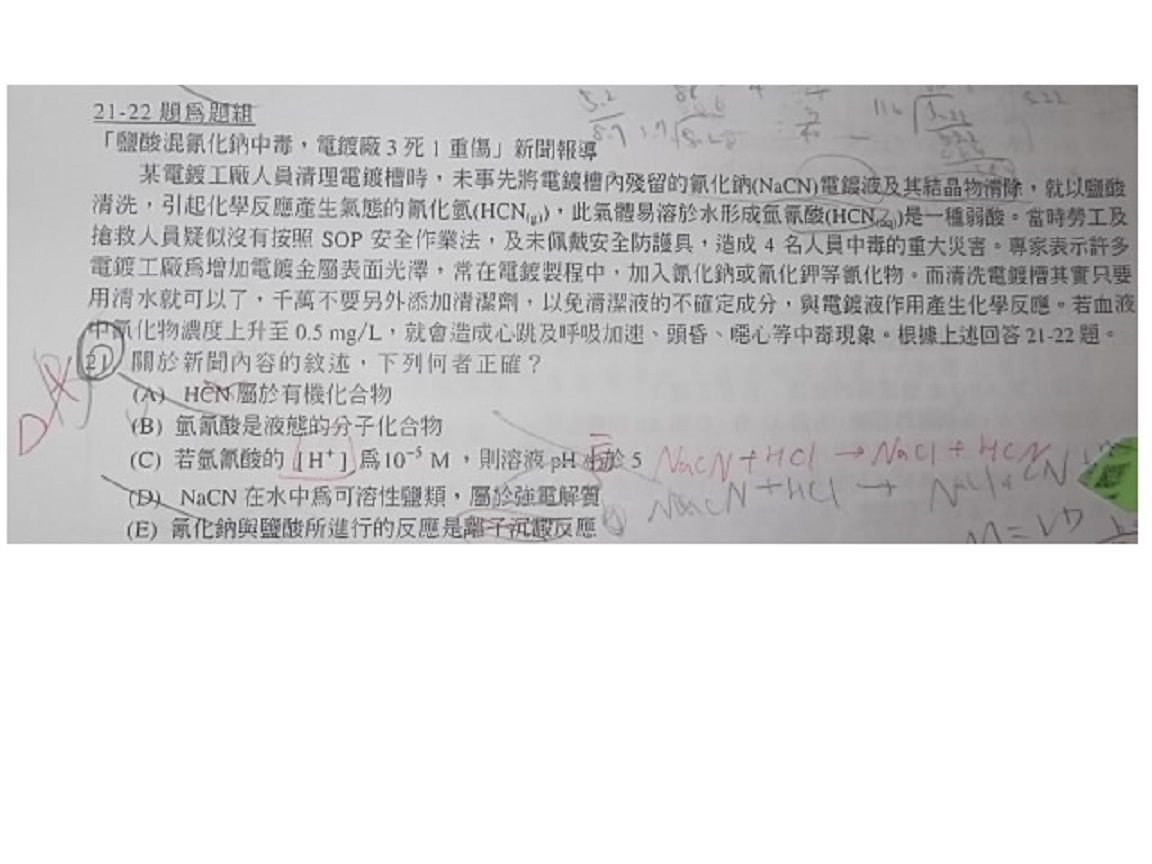 21-22 題為題組
「鹽酸混氰化鈉中毒，電鍍廠 3 死 1 重傷」新聞報導
某電鍍工廠人員清理電鍍槽時，未事先將電鍍槽內殘留的氰化鈉(NaCN)電鍍液及其結晶物清除，就以鹽酸
清洗，引起化學反應產生氣態的氰化氫(HCN(g))，此氣體易溶於水形成氫氰酸(HCN(aq))是一種弱酸。當時勞工及
搶救人員疑似沒有按照 SOP 安全作業法，及未佩戴安全防護具，造成 4 名人員中毒的重大災害。專家表示許多
電鍍工廠為增加電鍍金屬表面光澤，常在電鍍製程中，加入氰化鈉或氰化鉀等氰化物。而清洗電鍍槽其實只要
用清水就可以了，千萬不要另外添加清潔劑，以免清潔液的不確定成分，與電鍍液作用產生化學反應。若血液
中氰化物濃度上升至 0.5 mg/L，就會造成心跳及呼吸加速、頭昏、噁心等中毒現象。根據上述回答 21-22 題。
21 關於新聞內容的敘述，下列何者正確？
(A) HCN 屬於有機化合物
(B) 氫氰酸是液態的分子化合物
(C) 若氫氰酸的 [H⁺] 為 10⁻⁵ M，則溶液 pH 於 5
NaCN + HCl → NaCl + HCN
(D) NaCN 在水中為可溶性鹽類，屬於強電解質
NaCN + HCl → NaCl + CN
(E) 氰化鈉與鹽酸所進行的反應是離子沉澱反應
D